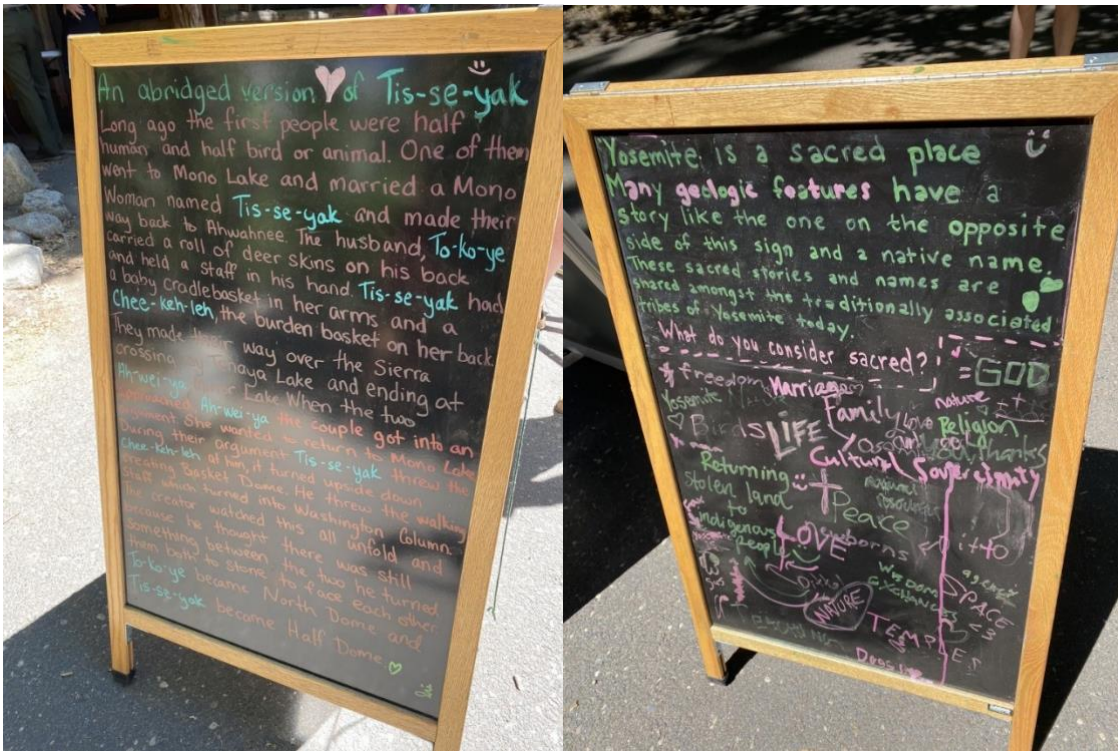 An abridged version of Tis-se-yak
Long ago the first people were half
human and half bird or animal. One of them
went to Mono Lake and married a Mono
Woman named Tis-se-yak and made their
way back to Ahwahnee. The husband, To-ko-ye
carried a roll of deer skins on his back
and held a staff in his hand. Tis-se-yak had
a baby cradlebasket in her arms and a
Chee-keh-leh, the burden basket on her back.
They made their way over the Sierra
crossing Tenaya Lake and ending at
Ah-wei-ya Lake When the two
approached Ah-wei-ya the couple got into an
argument. She wanted to return to Mono Lake
During their argument Tis-se-yak threw the
Chee-keh-leh at him, it turned upside down
creating Basket Dome. He threw the walking
staff which turned into Washington Column.
The creator watched this all unfold and
because he thought there was still
something between the two he turned
them both to stone, to face each other
To-ko-ye became North Dome and
Tis-se-yak become Half Dome.
Yosemite is a sacred place
Many geologic features have a
story like the one on the opposite
side of this sign and a native name.
These sacred stories and names are
shared amongst the traditionally associated
tribes of Yosemite today.
What do you consider sacred?
= GOD
freedom
Marriage
nature
Yosemite
Family
Love
Religion
Birds
LIFE
Thanks
Cultural Sovereignty
Returning
stolen land
to
indigenous
people
natural
Peace
LOVE
newborns
Wisdom
EXCHANGE
SPACE
<3
NATURE
TEMPLES
Dogs